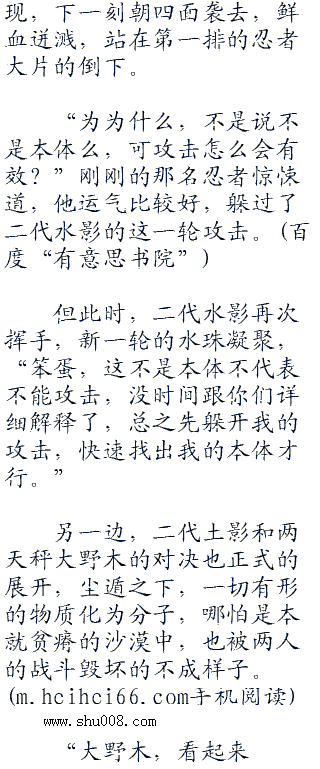 现，下一刻朝四面袭去，鲜
血迸溅，站在第一排的忍者
大片的倒下。
“为为什么，不是说不
是本体么，可攻击怎么会有
效？”刚刚的那名忍者惊悚
道，他运气比较好，躲过了
二代水影的这一轮攻击。(百
度“有意思书院”)
但此时，二代水影再次
挥手，新一轮的水珠凝聚，
“笨蛋，这不是本体不代表
不能攻击，没时间跟你们详
细解释了，总之先躲开我的
攻击，快速找出我的本体才
行。”
另一边，二代土影和两
天秤大野木的对决也正式的
展开，尘遁之下，一切有形
的物质化为分子，哪怕是本
就贫瘠的沙漠中，也被两人
的战斗毁坏的不成样子。
(m.hcihci66.com手机阅读)
www.shu008.com
“大野木，看起来